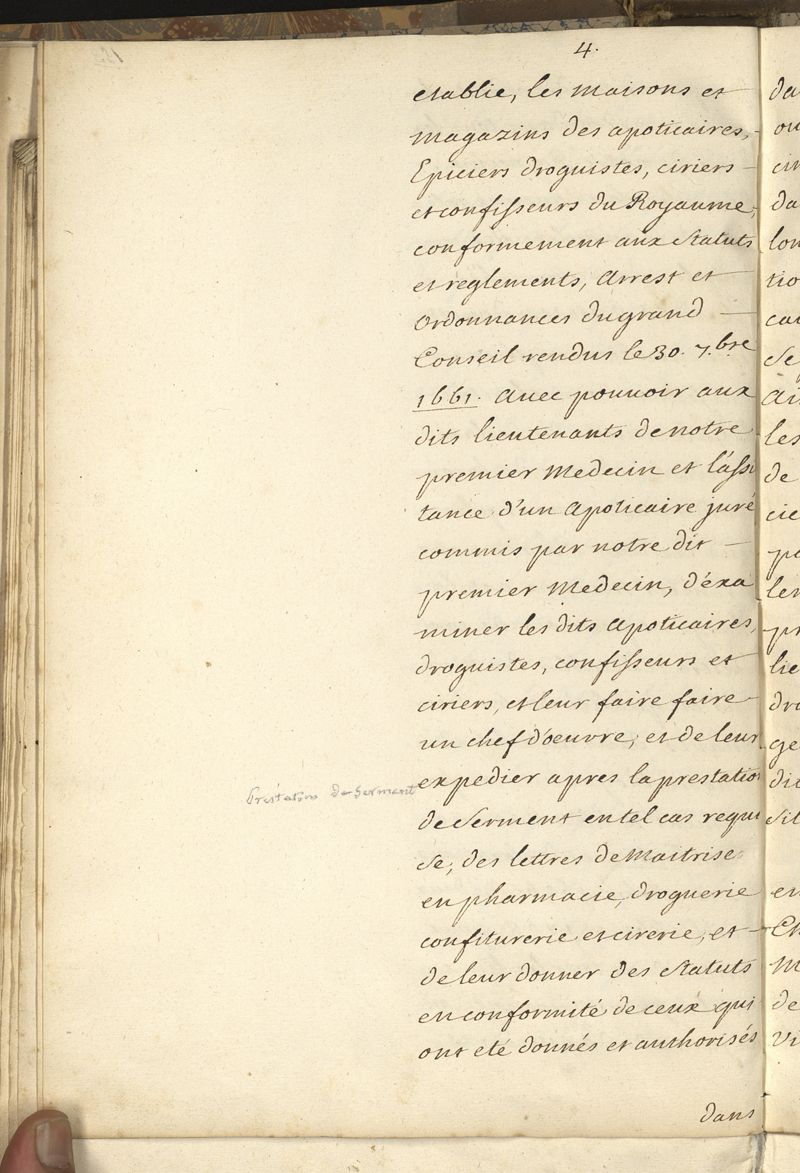 4.
etablie, les maisons et
magazins des apoticaires,
Epiciers droguistes, ciriers
et confisseurs du Royaume,
conformement aux Statuts
et reglements, arrest et
ordonnances du grand
Conseil rendus le 30. 7.bre
1661. avec pouvoir aux
dits lieutenants de notre
premier Medecin et l'assi
tance d'un apoticaire juré
commis par notre dit
premier Medecin, d'éxa
miner les dits apoticaires,
droguistes, confisseurs et
ciriers, et leur faire faire
un chef d'oeuvre, et de leur
Prestation de Serment
expedier apres la prestation
de Serment en tel cas requi
se, des lettres de Maitrise
en pharmacie, droguerie
confiturerie et cirerie, et
de leur donner des Statuts
en conformité de ceux qui
ont eté donnés et authorisés
dans